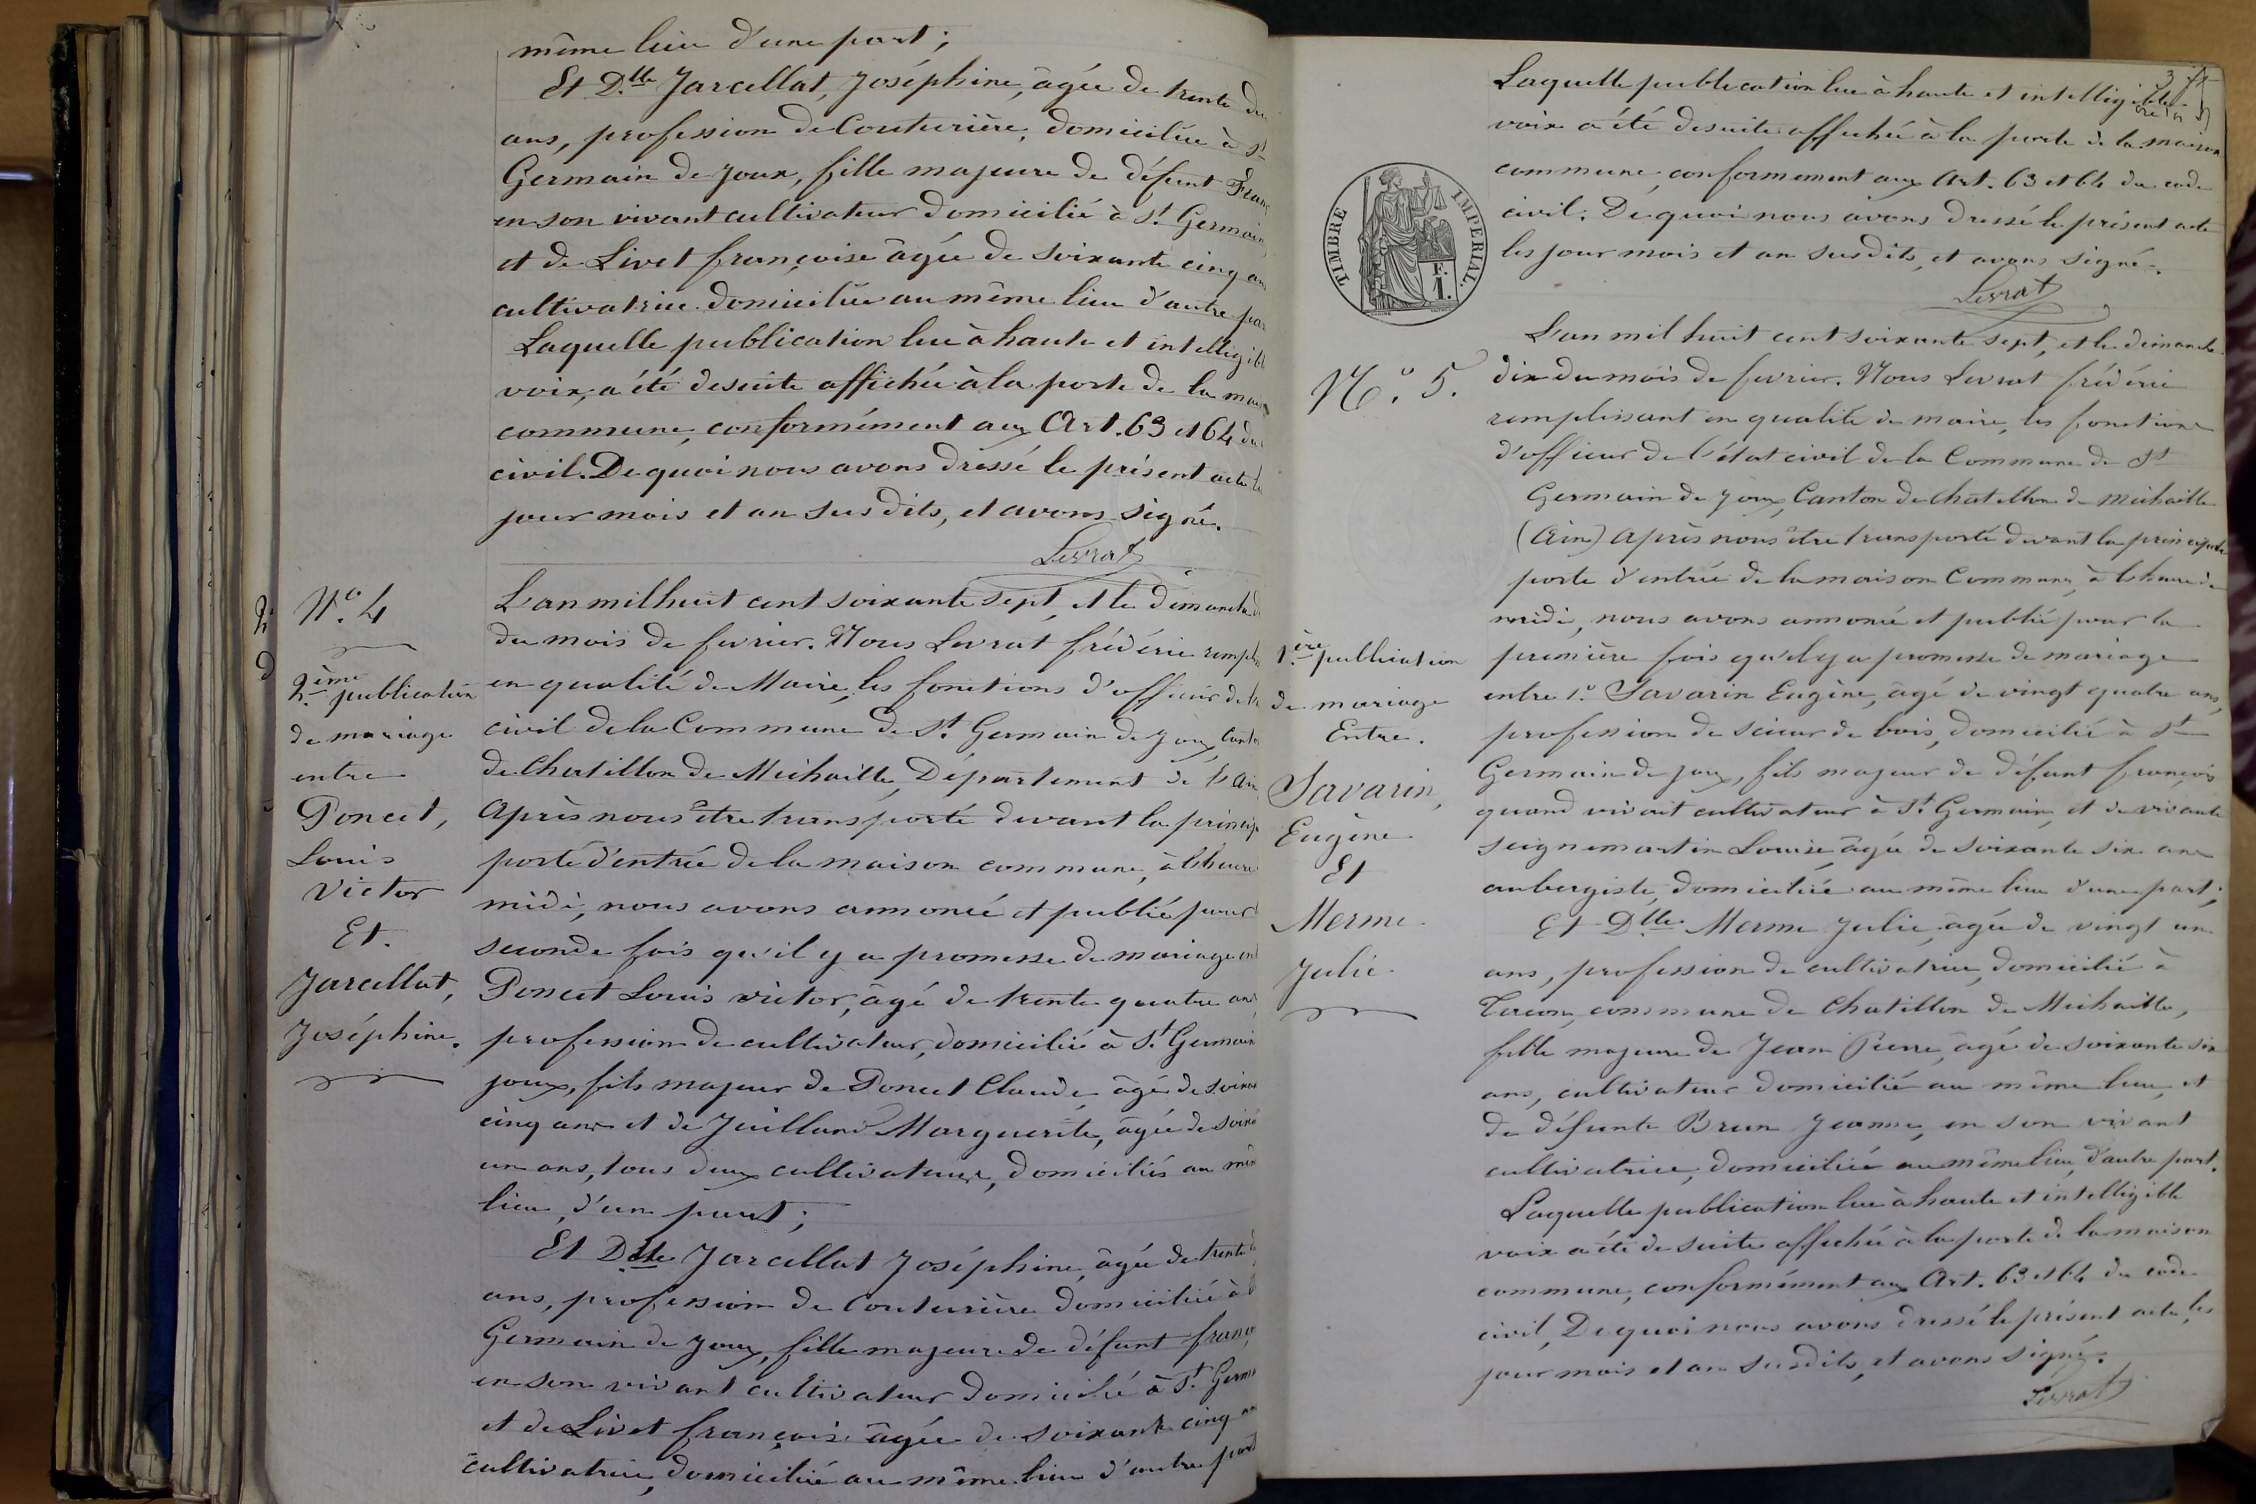 même lieu d'une part;
Et D.lle Jarcellat, Joséphine, âgée de trente
ans, profession de Couturière, domiciliée à St
Germain de Joux, fille majeure de défunt
en son vivant cultivateur domicilié à St. Germain
et de Livet françoise âgée de soixante cinq ans
cultivatrice domiciliée au même lieu d'autre
Laquelle publication lue à haute et intelligible
voix, a été desuite affichée à la porte de la
commune, conformément aux Art. 63 et 64 du
civil. De quoi nous avons dressé le présent acte
jour mois et an susdits, et avons signé.
Levrat
N.° 4
2.ème publication
de mariage
entre
Poncet,
Louis
Victor
Et.
Jarcellat,
Joséphine.
L'an mil huit cent soixante sept, et le dimanche
du mois de fevrier. Nous Levrat frédéric
en qualité de Maire, les fonctions d'officier de
civil de la Commune de St. Germain de Joux,
de Chatillon de Michaille, Département de l'Ain
Après nous être transporté devant la
porte d'entrée de la maison commune, à l'heure
midi, nous avons annoncé et publié pour
seconde fois qu'il y a promesse de mariage
Poncet Louis victor, âgé de trente quatre ans
profession de cultivateur, domicilié à St. Germain
joux, fils majeur de Poncet Claude, âgé de
cinq ans et de Juilland Marguerite, âgée de
un ans, tous deux cultivateurs, domiciliés au
lieu, d'une part;
Et Dlle Jarcellat Joséphine, âgée de trente
ans, profession de Couturière domiciliée à
Germain de Joux, fille majeure de défunt
en son vivant cultivateur domicilié à St.
et de Livet françoise âgée de soixante cinq
cultivatrice, domiciliée au même lieu d'autre part
Laquelle publication lue à haute et intelligible
voix a été desuite affichée à la porte de la maison
commune, conformement aux Art. 63 et 64 du code
civil. De quoi nous avons dressé le présent acte
les jour mois et an susdits, et avons signé.
Levrat
TIMBRE IMPERIAL.
F.
1.
N.° 5.
1.ère publication
de mariage
Entre.
Savarin,
Eugène
Et
Merme
Julie
L'an mil huit cent soixante sept, et le dimanche
dix du mois de fevrier. Nous Levrat frédéric
remplissant en qualité de maire, les fonctions
d'officier de l'état civil de la Commune de St
Germain de joux, Canton de Chatillon de Michaille
(Ain) Après nous être transporté devant la principale
porte d'entrée de la maison Commune, à l'heure de
midi, nous avons annoncé et publié pour la
première fois qu'il y a promesse de mariage
entre 1.° Savarin Eugène, âgé de vingt quatre ans,
profession de scieur de bois, domicilié à St
Germain de joux, fils majeur de défunt françois
quand vivait cultivateur à St. Germain, et de vivante
Seignemartin Louise âgée de soixante six ans
aubergiste, domiciliée au même lieu d'une part;
Et Dlle. Merme Julie, âgée de vingt un
ans, profession de cultivatrice, domicilié à
commune de Chatillon de Michaille,
fille majeure de Jean Pierre, âgé de soixante six
ans, cultivateur domicilié au même lieu, et
de défunte Brun Jeanne, en son vivant
cultivatrice, domiciliée au même lieu, d'autre part.
Laquelle publication lue à haute et intelligible
voix a été de suite affichée à la porte de la maison
commune, conformément aux Art. 63 et 64 du code
civil, De quoi nous avons dressé le présent acte, les
jour mois et an susdits, et avons signé.
Levrat